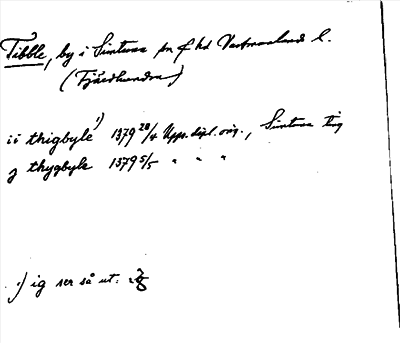 Tibble, by i Simtuna sn o f hd Västmanlands l.
(Fjärdhundra)
ii thigbyle 1) 1379 28/4 Upps. dipl. orig., Simtuna ting
j thygbyle 1379 5/5 " " "
1) ig ser så ut: